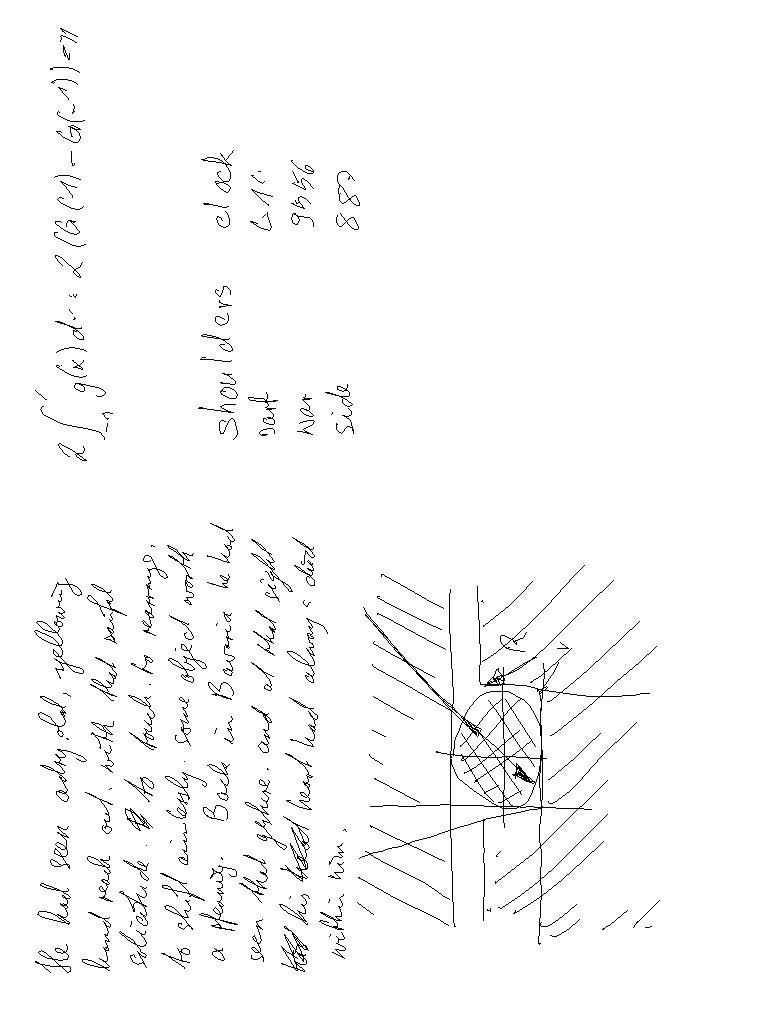 He had seen a dry, old, yellowing
hand reach out with that
solicitude. to touch to rearrange.
to shift aimlessly some object worth
a pfennig. Back in Bavaria he had
seen that gesture. and at that sight
his heart had always died
within him.
2∫₋₁¹ g(x)d = 2(G(1)-G(-1))=π
shoulders clock
war 9556
side
R